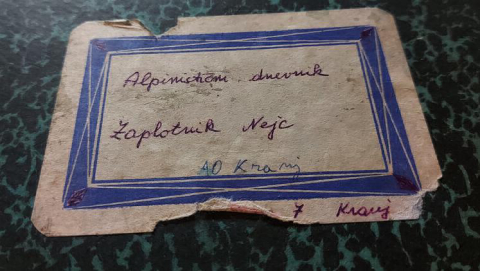 Alpinistični dnevnik
Zaplotnik Nejc
AO Kranj
7 Kranj